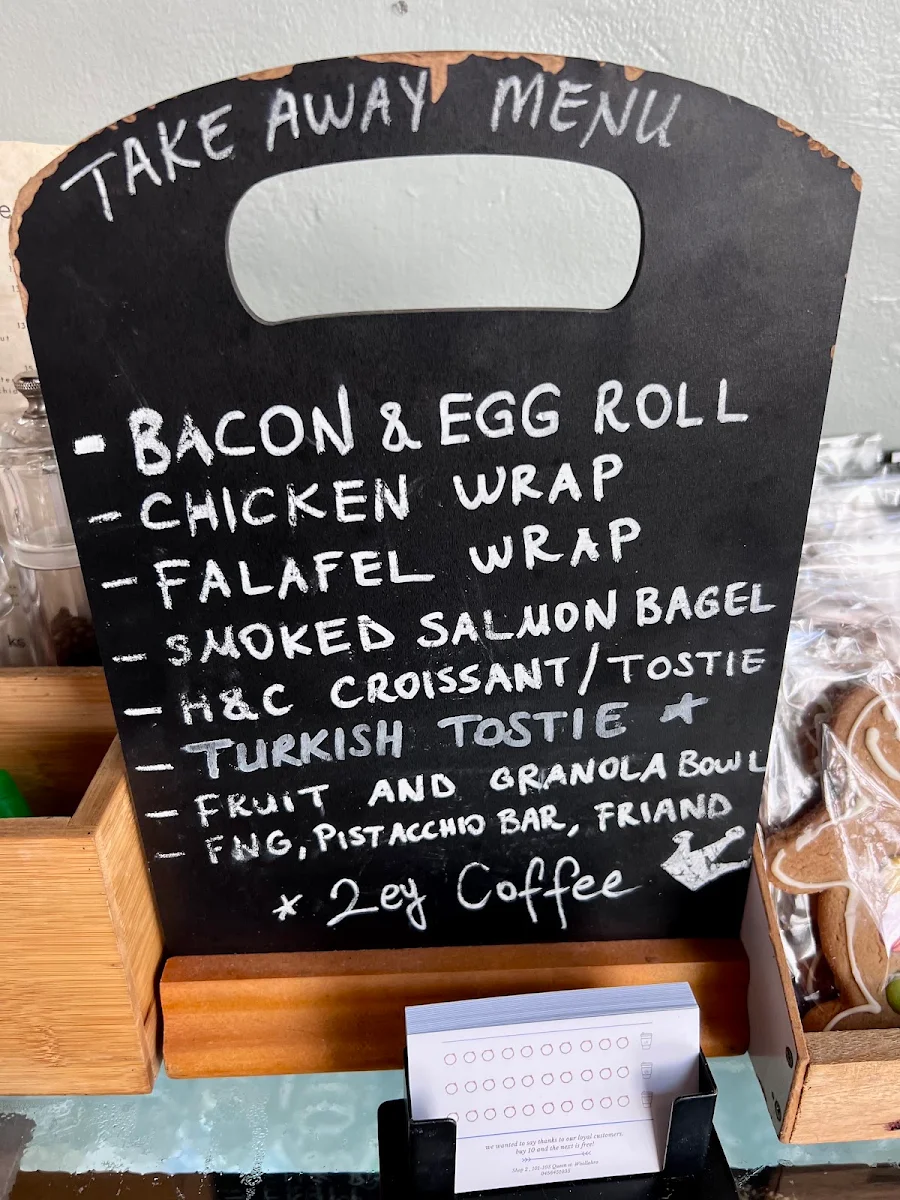 TAKE AWAY MENU
- BACON & EGG ROLL
- CHICKEN WRAP
- FALAFEL WRAP
- SMOKED SALMON BAGEL
- H&C CROISSANT/TOSTIE
- TURKISH TOSTIE *
- FRUIT AND GRANOLA BOWL
- FNG, PISTACCHIO BAR, FRIAND
* 2ey Coffee
we wanted to say thanks to our loyal customers,
buy 10 and the next is free!